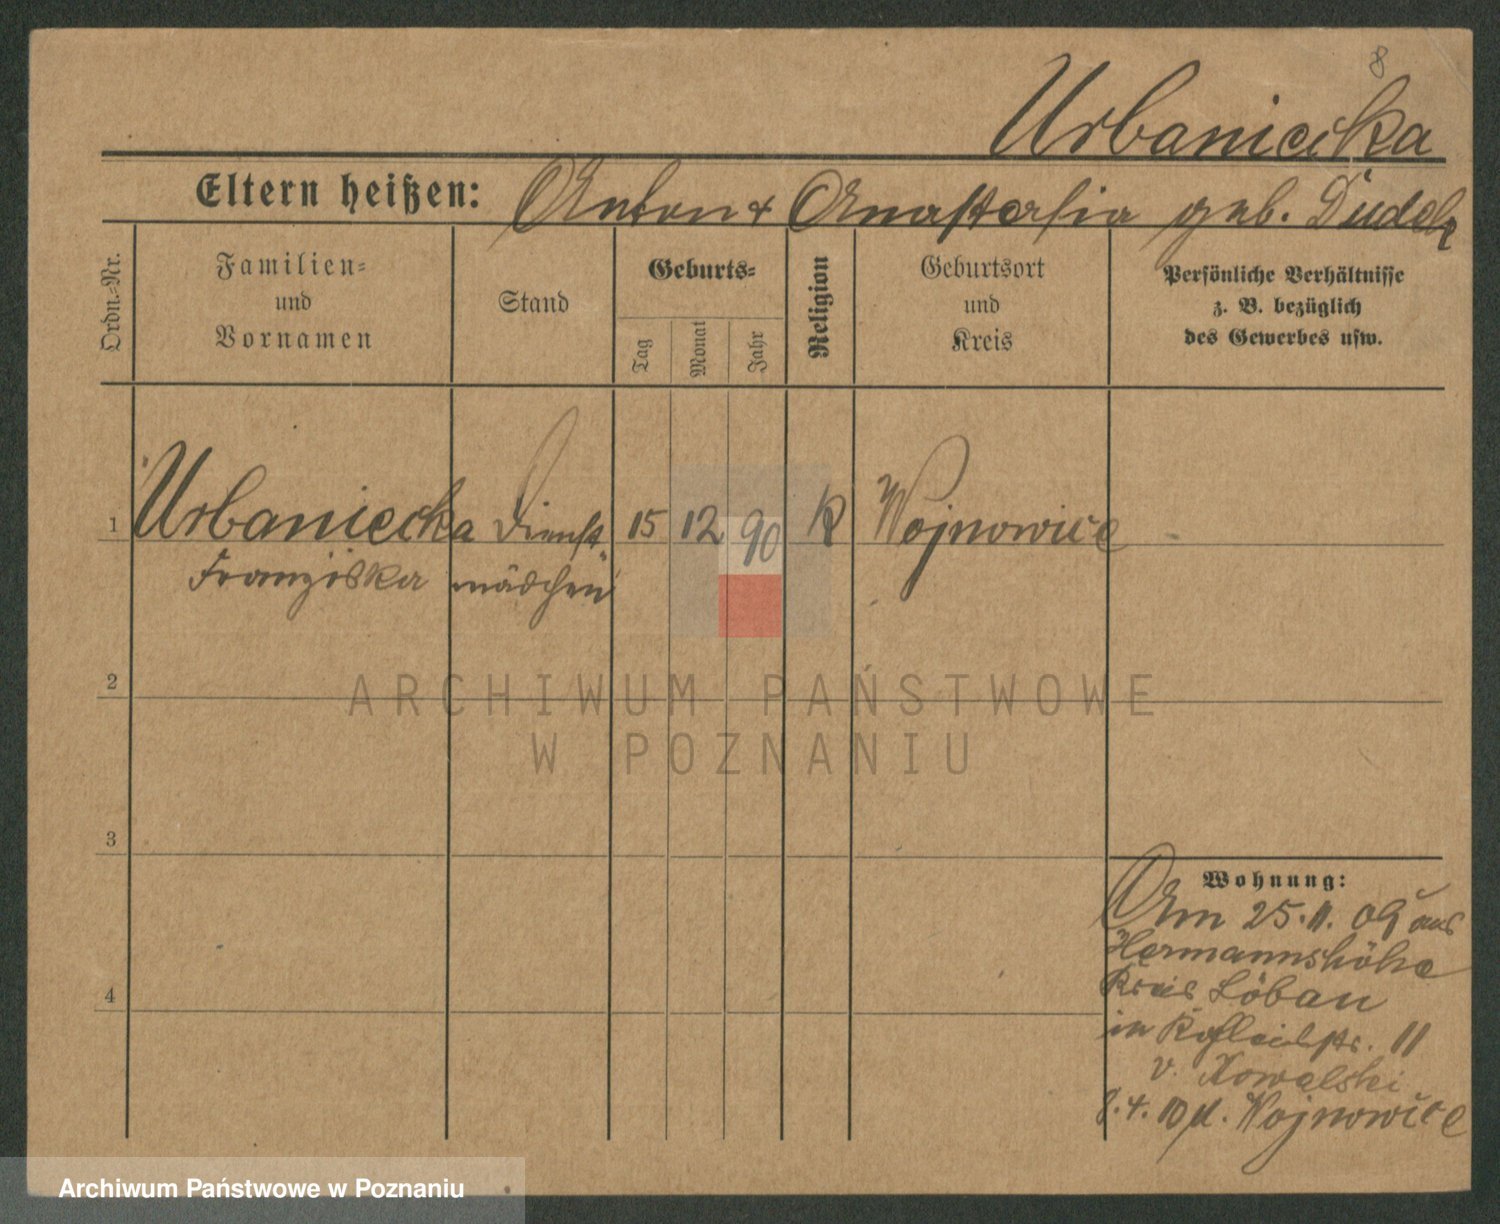 8
Urbaniecka
Eltern heißen: Anton + Anastasia geb. Dudek
Ordn.-Nr.
Familien-
und
Vornamen
Stand
Geburts-
Tag
Monat
Jahr
Religion
Geburtsort
und
Kreis
Persönliche Verhältnisse
z. B. bezüglich
des Gewerbes usw.
1 Urbaniecka Dienst 15 12 90 K Wojnowice
Franziska mädchen
2
ARCHIWUM PAŃSTWOWE
W POZNANIU
3
4
Wohnung:
Am 25.11.09 aus
Hermannshöhe
Kreis Löbau
in str. 11
v. Kowalski
8.4.10 n. Wojnowice
Archiwum Państwowe w Poznaniu